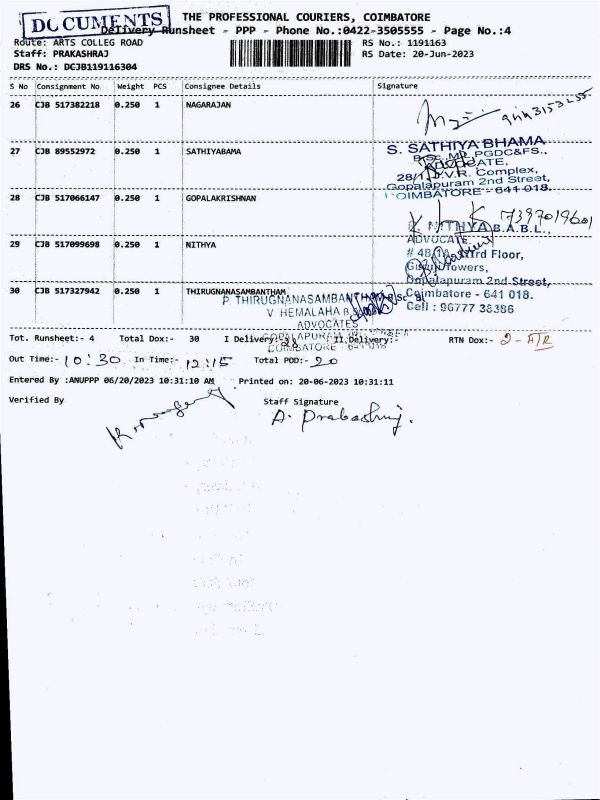 DOCUMENTS
THE PROFESSIONAL COURIERS, COIMBATORE
Delivery Runsheet - PPP - Phone No.:0422-3505555 - Page No.:4
Route: ARTS COLLEG ROAD RS No.: 1191163
Staff: PRAKASHRAJ RS Date: 20-Jun-2023
DRS No.: DCJB119116304
S No Consignment No Weight PCS Consignee Details Signature
26 CJB 517382218 0.250 1 NAGARAJAN
27 CJB 89552972 0.250 1 SATHIYABAMA
S. SATHIYA BHAMA
B.Sc., ML, PGDC&FS.,
ADVOCATE,
V.R. Complex,
Gopalapuram 2nd Street,
COIMBATORE - 641 018.
28 CJB 517066147 0.250 1 GOPALAKRISHNAN
7397019601
29 CJB 517099698 0.250 1 NITHYA
NITHYA B.A.B.L.,
ADVOCATE
IIIrd Floor,
Towers,
Gopalapuram 2nd Street,
Coimbatore - 641 018.
Cell : 96777 38386
30 CJB 517327942 0.250 1 THIRUGNANASAMBANTHAM
P. THIRUGNANASAMBANTHAM
V. HEMALAHA
ADVOCATES
COIMBATORE - 641 018
Tot. Runsheet:- 4 Total Dox:- 30 I Delivery:- 28 II Delivery:- RTN Dox:- 2
Out Time:- 10:30 In Time:- 12:15 Total POD:- 20
Entered By :ANUPPP 06/20/2023 10:31:10 AM Printed on: 20-06-2023 10:31:11
Verified By Staff Signature